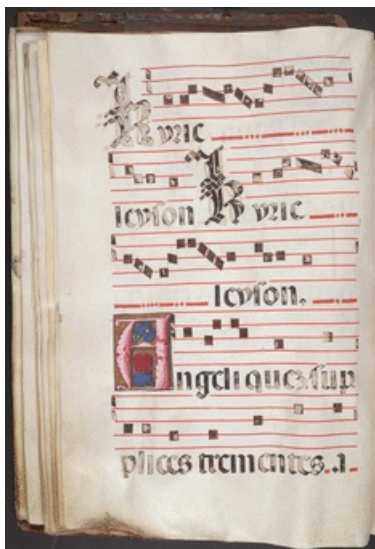 Kyrie
leyson Kyrie
leyson.
Angeli quez sup
plices trementes .a